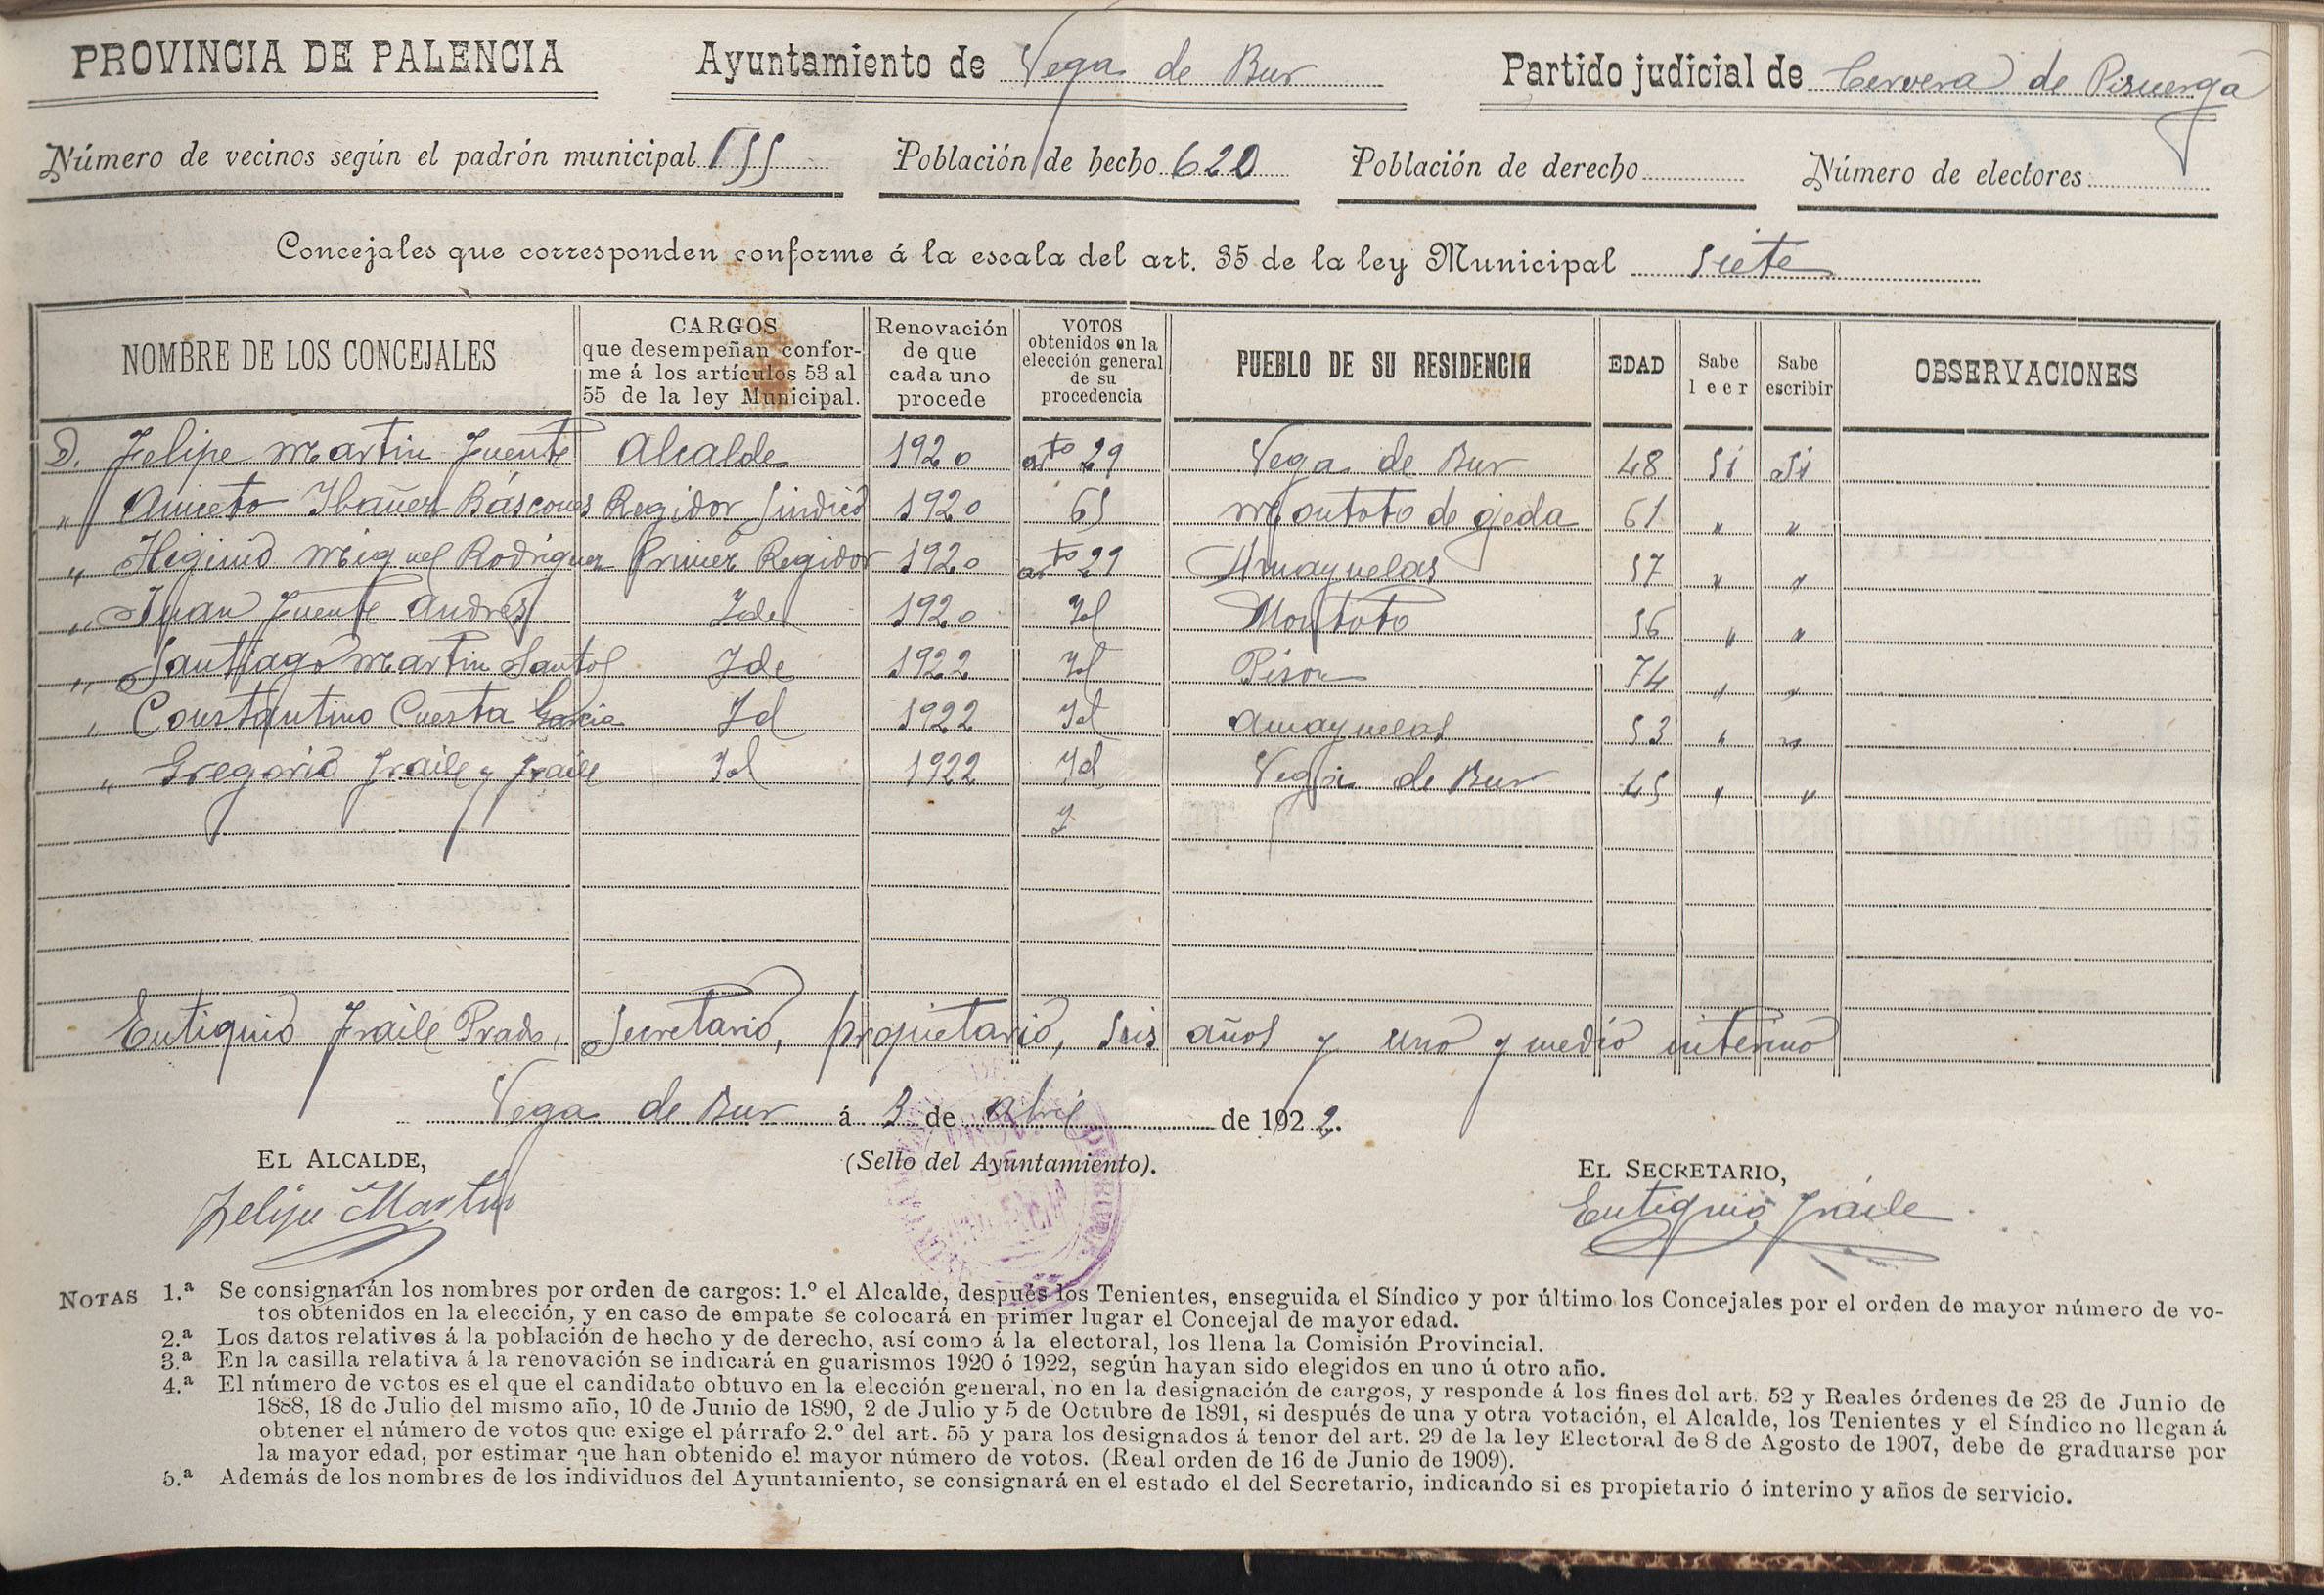 PROVINCIA DE PALENCIA Ayuntamiento de Vega de Bur Partido judicial de Cervera de Pisuerga
Número de vecinos según el padrón municipal 155 Población de hecho 620 Población de derecho Número de electores
Concejales que corresponden conforme á la escala del art. 35 de la ley Municipal siete
NOMBRE DE LOS CONCEJALES
CARGOS
que desempeñan confor-
me á los artículos 53 al
55 de la ley Municipal.
Renovación
de que
cada uno
procede
VOTOS
obtenidos en la
elección general
de su
procedencia
PUEBLO DE SU RESIDENCIA
EDAD
Sabe
leer
Sabe
escribir
OBSERVACIONES
D. Felipe Martin Fuente Alcalde 1920 arto 29 Vega de Bur 48 Si Si
" Aniceto Ibañez Báscones Regidor Sindico 1920 65 Montoto de ojeda 61 " "
" Higinio Miguel Rodriguez Primer Regidor 1920 arto 29 Amayuelas 57 " "
" Juan Fuente Andres Ide 1920 Id Montoto 56 " "
" Santiago Martin Santos Ide 1922 Id Pison 74 " "
" Constantino Cuesta Garcia Id 1922 Id Amayuelas 53 " "
" Gregorio Fraile y Fraile Id 1922 Id Vega de Bur 45 " "
Eutiquio Fraile Prado, Secretario, propietario, seis años y uno y medio interino
Vega de Bur á 3 de abril de 1922.
EL ALCALDE, (Sello del Ayuntamiento). EL SECRETARIO,
Felipe Martin Eutiquio Fraile
NOTAS 1.ª Se consignarán los nombres por orden de cargos: 1.º el Alcalde, después los Tenientes, enseguida el Síndico y por último los Concejales por el orden de mayor número de vo-
tos obtenidos en la elección, y en caso de empate se colocará en primer lugar el Concejal de mayor edad.
2.ª Los datos relatives á la población de hecho y de derecho, así como á la electoral, los llena la Comisión Provincial.
3.ª En la casilla relativa á la renovación se indicará en guarismos 1920 ó 1922, según hayan sido elegidos en uno ú otro año.
4.ª El número de votos es el que el candidato obtuvo en la elección general, no en la designación de cargos, y responde á los fines del art. 52 y Reales órdenes de 23 de Junio de
1888, 18 de Julio del mismo año, 10 de Junio de 1890, 2 de Julio y 5 de Octubre de 1891, si después de una y otra votación, el Alcalde, los Tenientes y el Síndico no llegan á
obtener el número de votos que exige el párrafo 2.º del art. 55 y para los designados á tenor del art. 29 de la ley Electoral de 8 de Agosto de 1907, debe de graduarse por
la mayor edad, por estimar que han obtenido el mayor número de votos. (Real orden de 16 de Junio de 1909).
5.ª Además de los nombres de los individuos del Ayuntamiento, se consignará en el estado el del Secretario, indicando si es propietario ó interino y años de servicio.